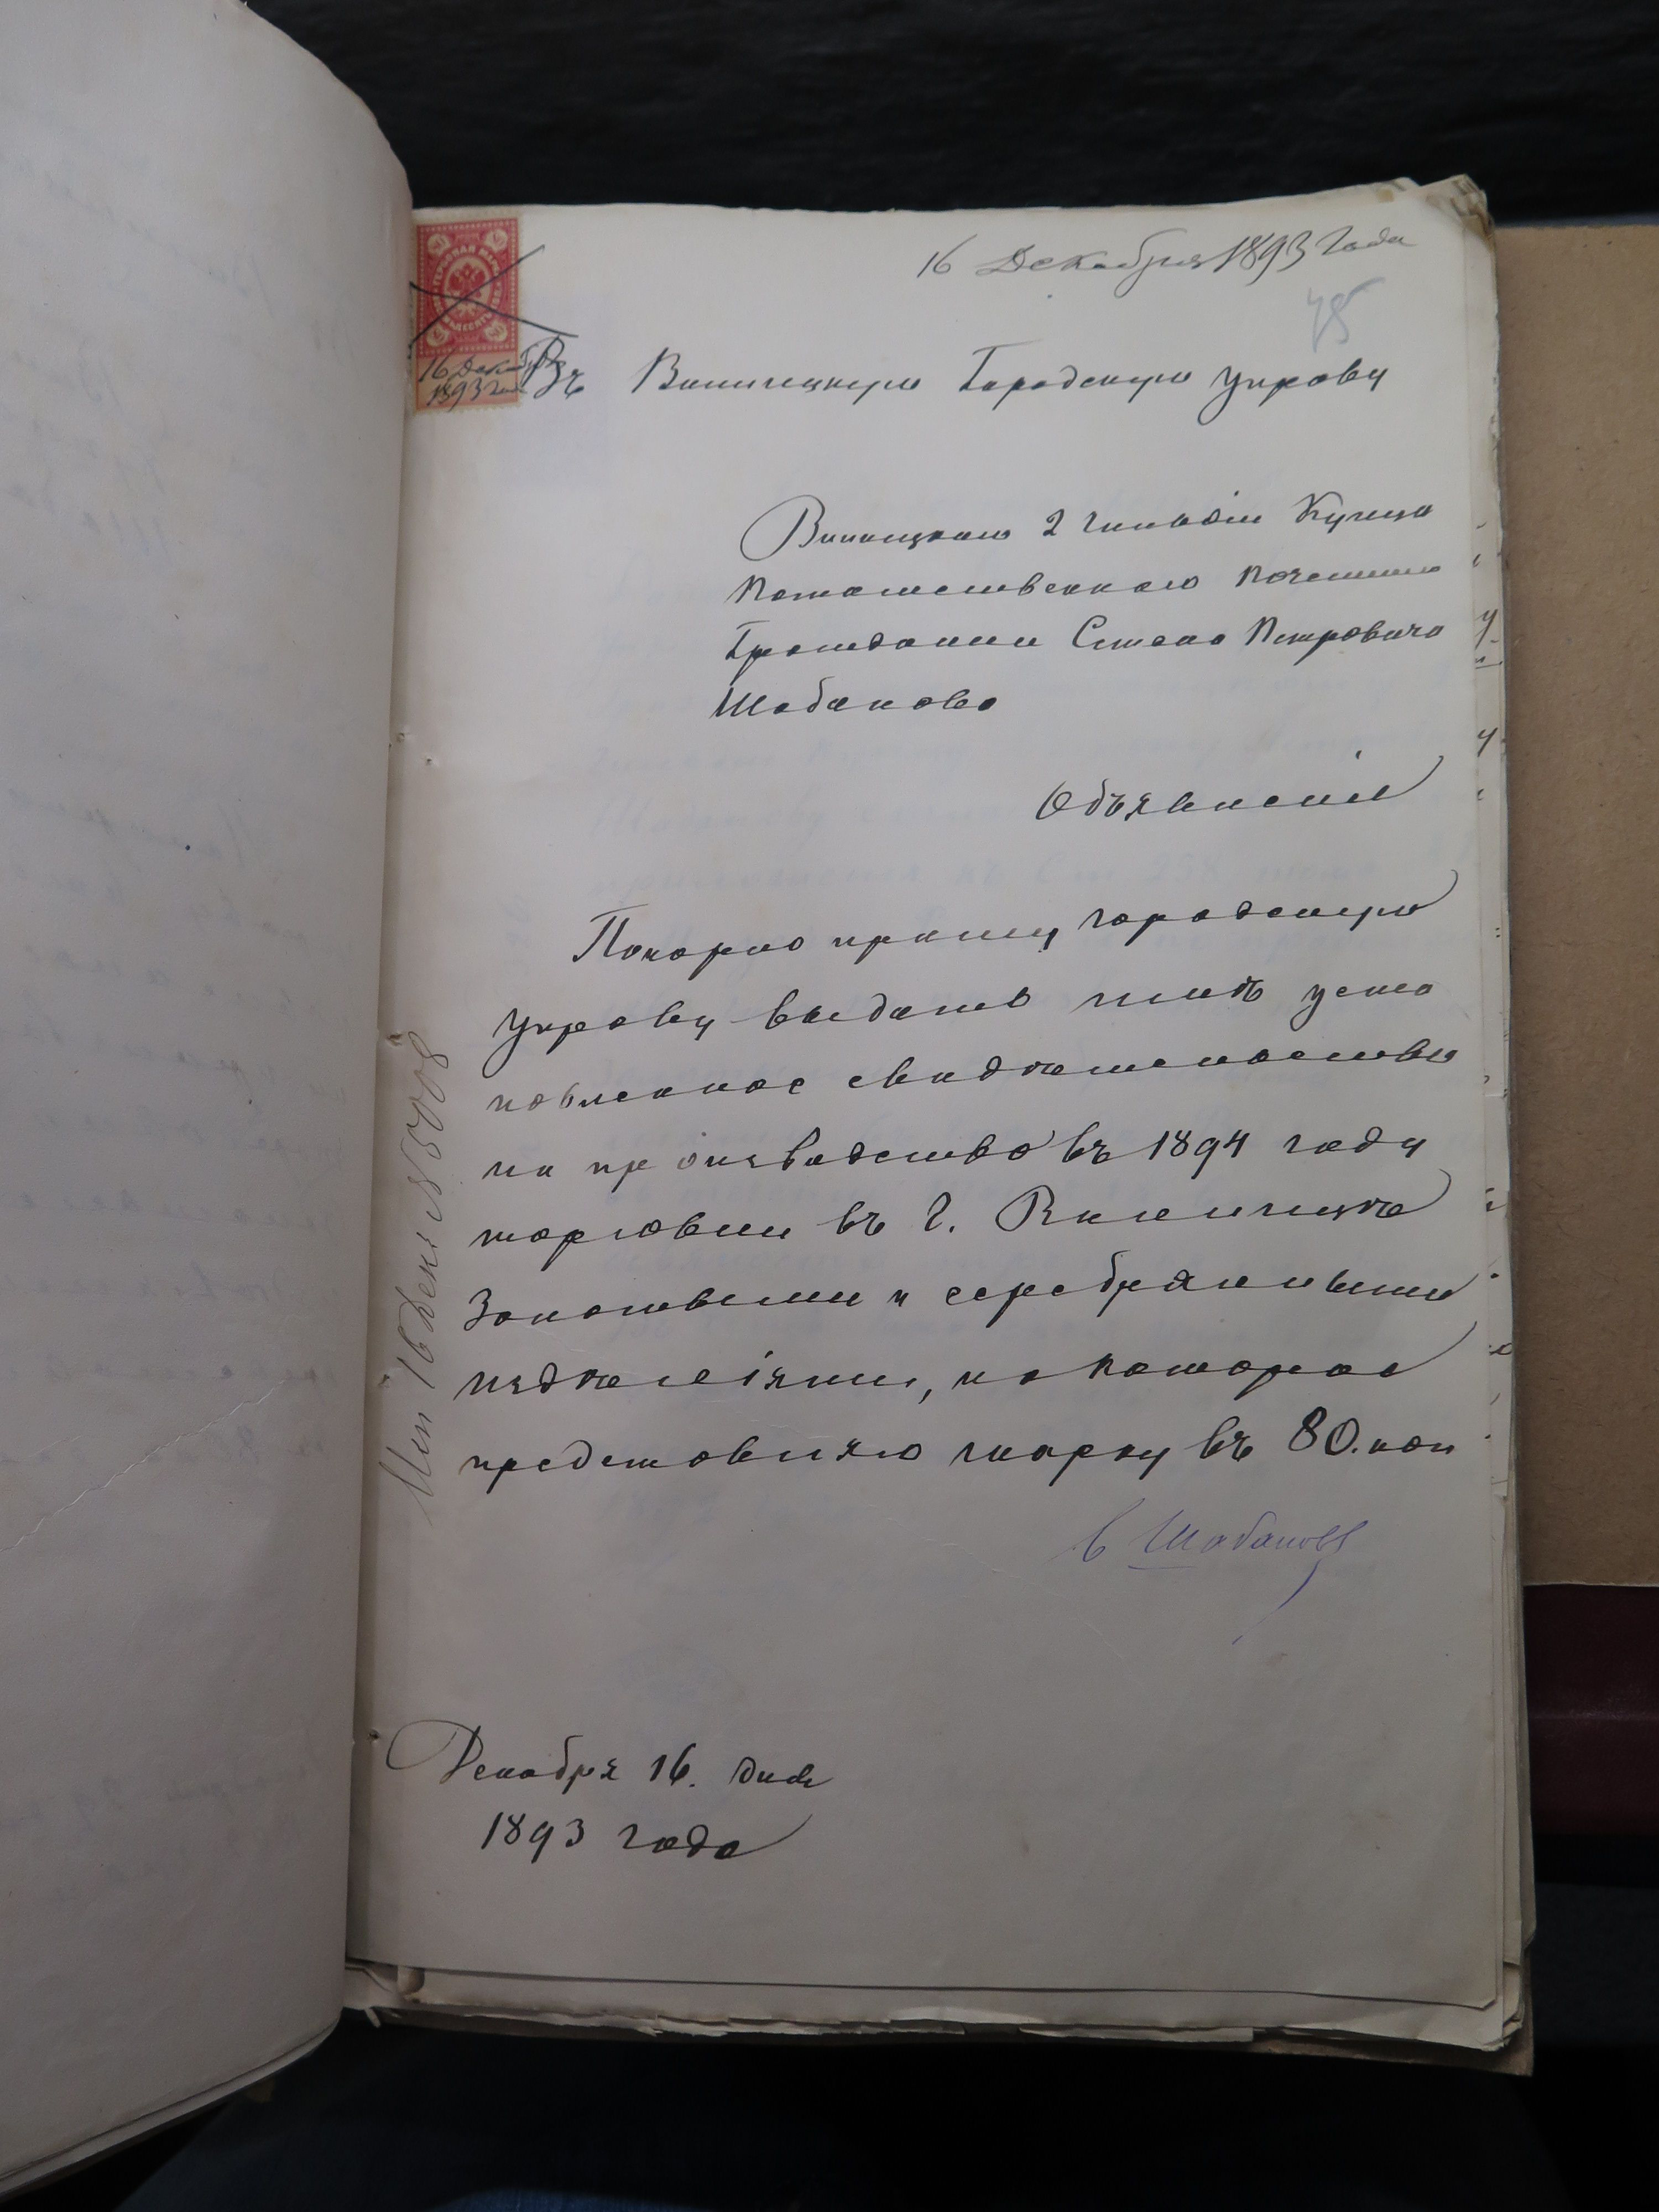 16 Декабря 1893 Года
ГЕРБОВАЯ МАРКА
16 Декабря
1893 года
Въ Винницкую Городскую Управу
Винницкаго 2 гильдіи Купца
Потомственнаго Почетнаго
Гражданина Степана Петровича
Шабанова
Объявленіе
Покорно прошу городскую
Управу выдать мнѣ уста
новленное свидѣтельство
на производство въ 1894 году
торговли въ г. Винницѣ
Золотыми и серебряными
издѣліями, на которое
представляю марку въ 80. коп
С Шабановъ
Декабря 16. дня
1893 года
16 Дек. № 5008